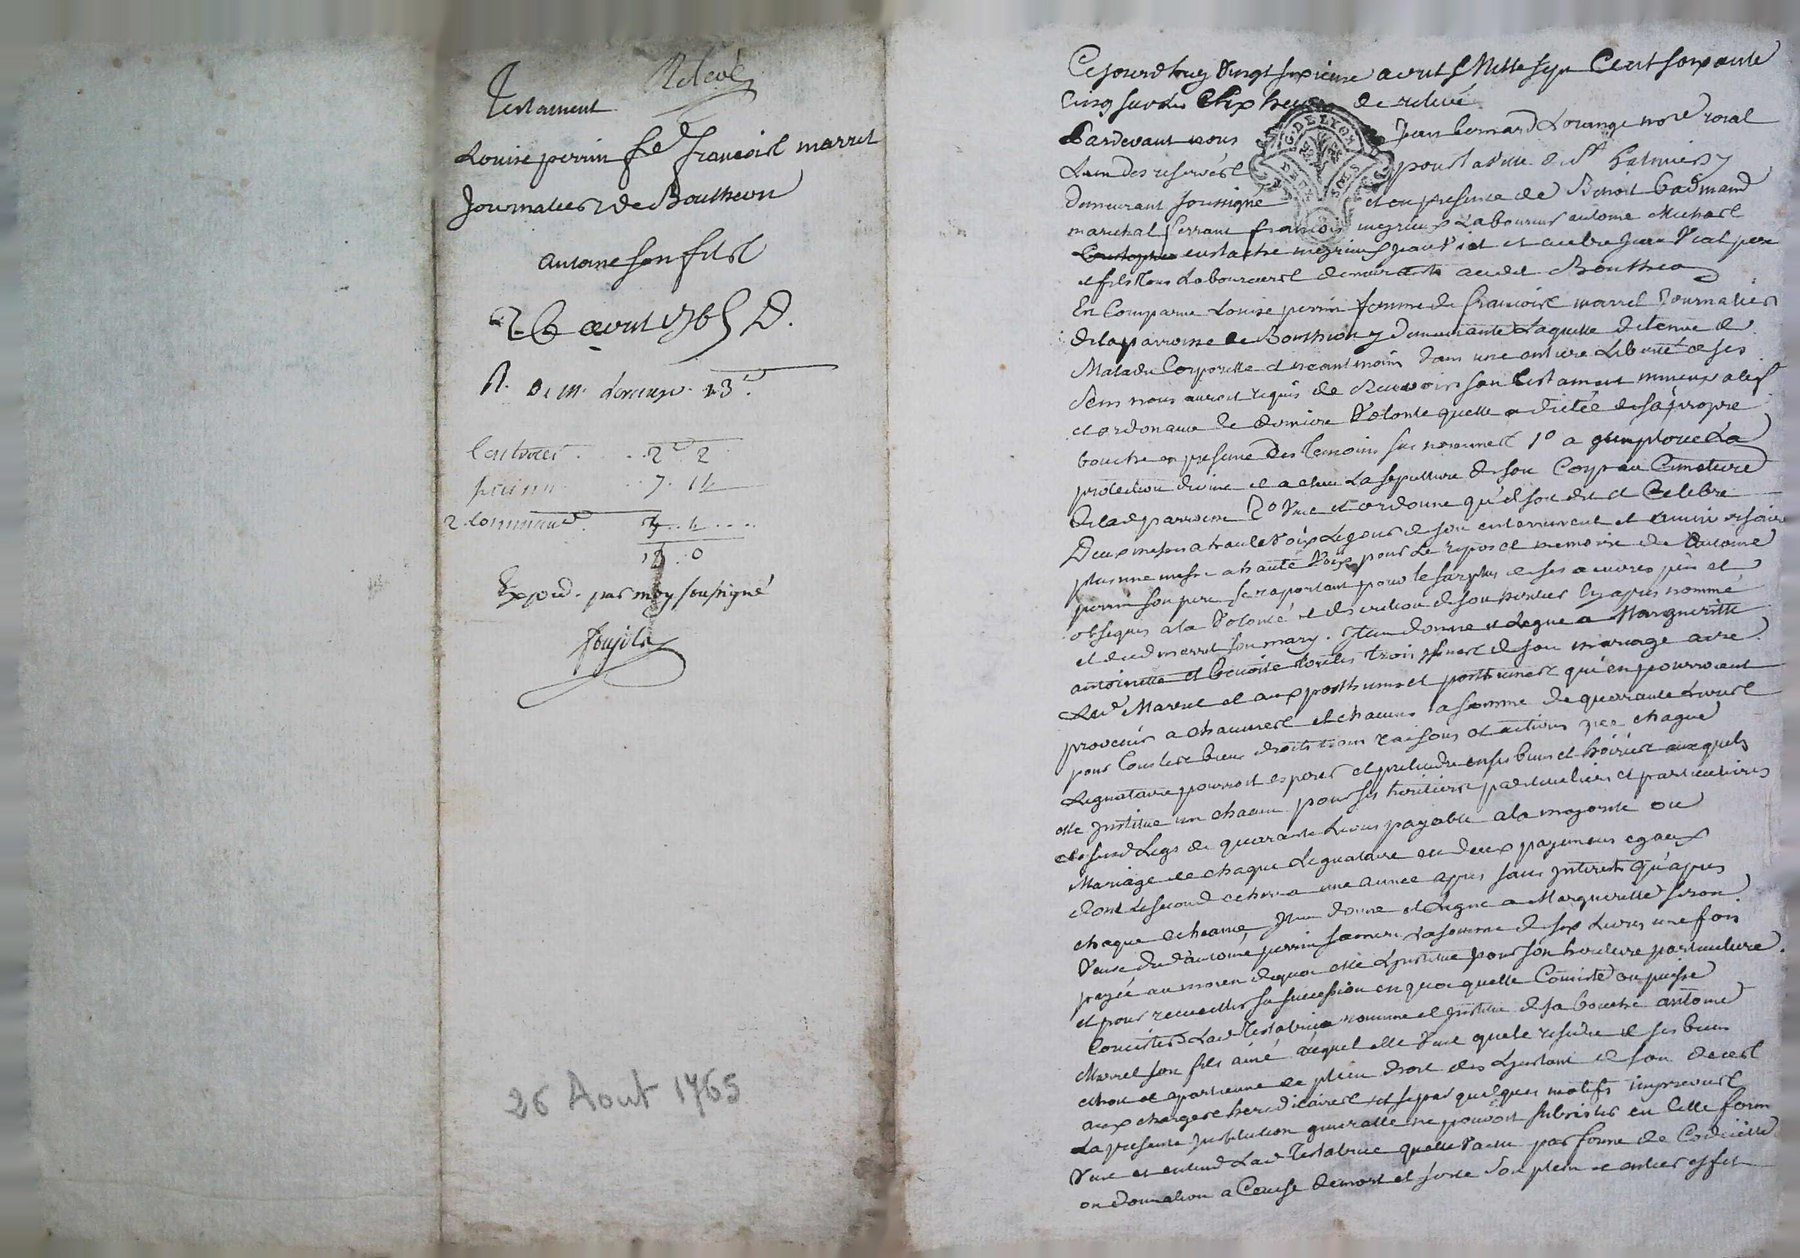 Relevé
Testament
Louise perrin fe françoist marret
Journalier de Boutheon
antoine son filst
26 avril 1765 D.
Controlle
2 2
7 14
2 Commun
Expedi par moy soussigné
26 Aout 1765
Cejourdhuy vingt sixieme avril Mille sept Cent soixante
Cinq sur les six heures de relevé
Pardevant nous Jean bernard Lorange nore roial
Lun des reservés pour la ville de St Galmier y
G. DE LYON
DEUX SOLS
demeurant soussigné et en presence de Benoit
marechal ferrant françois megrieux Laboureur antoine Michel
eustache megrieux Jean Vial et autre Jean Vial pere
et fils tous Laboureurst demeurants audit Boutheon
En Comparue Louise perrin femme de françoist marret Journalier
de la parroisse de Bouthion y demeurante Laquelle detenue de
Maladie Corporelle et neantmoins dans une entiere Liberté de ses
sens nous auroit requis de Recevoir son testament nuncupatif
et ordonance de derniere Volonté quelle a dictée de sa propre
bouche en presence des temoins sus nommest 1o a imploré La
protection divine et a eleu La sepulture de son Corps au Cimetiere
de lad parroisse 2o Veut et ordonne qu'il soit dit et Celebré
Deux messes a haute Voix Le jour de son enterrement et
plus une messe a haute Voix pour Le repos et memoire de antoine
perrin son pere se raportant pour le surplus de ses œuvres pies et
obseques a la Volonté et discretion de son heritier Cy apres nommé
et dud marret son mary. Item donne et Legue a Margueritte
antoinette et benoite toutes trois filles de son mariage avec
Led Marret et aux posthumes et posthumest qu'en pourroient
provenir a chacunest et chacuns la somme de quarante Livrest
pour tous lest biens droits noms raisons et actions que chaque
Legataire pourroit esperer et pretendre en ses biens et hoiriest auxquels
elle Institue un chacun pour ses heritierst particuliers et particulieres
lesd Legs de quarante Livres payable a la majorité ou
Mariage de chaque Legataire en deux payemens egaux
dont le second echera une année apres sans Interets qu'apres
chaque echeance, Item donne et Legue a Margueritte
Veuve dud antoine perrin sa mere La somme de six Livres une fois
payée au moien dequoi elle L'institue pour son heritiere particuliere
et pour recueillir sa succession en quoi quelle Consiste ou puisse
Consister Lad Testatrice nomme et Institue de sa bouche antoine
Marret son fils ainé auquel elle Veut que le residu de ses biens
echoie et apartienne de plein droit des L'instant de son decest
aux chargest hereditairest et si par quelques motifs imprevust
La presente Institution generalle ne pouvoit subsister en Cette forme
Veut et entend Lad Testatrice quelle Vaille par forme de Codicille
ou donnation a Cause de mort et sorte son plein et entier effet